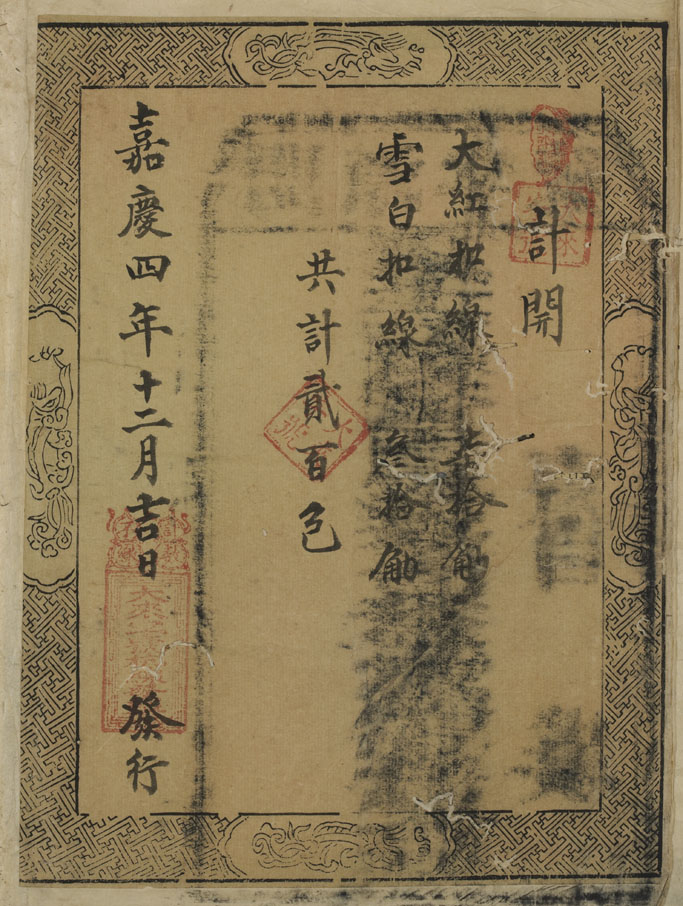 計開
大紅扣線 拾觔
雪白扣線 叁拾觔
共計貳百包
嘉慶四年十二月吉日 發行